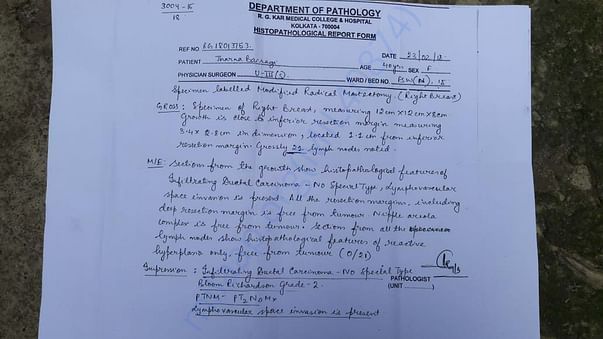 3004-15
18
DEPARTMENT OF PATHOLOGY
R. G. KAR MEDICAL COLLEGE & HOSPITAL
KOLKATA - 700004
HISTOPATHOLOGICAL REPORT FORM
REF NO RG18013753.
DATE 23/02/18
PATIENT Jharna Bairagi AGE 40yrs SEX F
PHYSICIAN SURGEON U-III(S) WARD / BED NO. FSW(N), 15
Specimen labelled Modified Radical Mastectomy. (Right Breast)
GROSS: Specimen of Right Breast, measuring 12cm x 12cm x 8cm
Growth is close to inferior resection margin measuring
3.4 x 2.8cm in dimension, located 1.1cm from inferior
resection margin. Grossly 21 lymph nodes noted.
M/E: Sections from the growth show histopathological features of
Infiltrating Ductal Carcinoma - No Special Type, Lymphovascular
space invasion is present. All the resection margins, including
deep resection margin is free from tumour. Nipple areola
complex is free from tumour. Section from all the
lymph nodes show histopathological features of reactive
hyperplasia only, free from tumour (0/21)
Impression: Infiltrating Ductal Carcinoma - No Special Type
Bloom Richardson Grade - 2.
PTNM - PT2 N0 Mx
Lymphovascular space invasion is present
PATHOLOGIST
(UNIT )